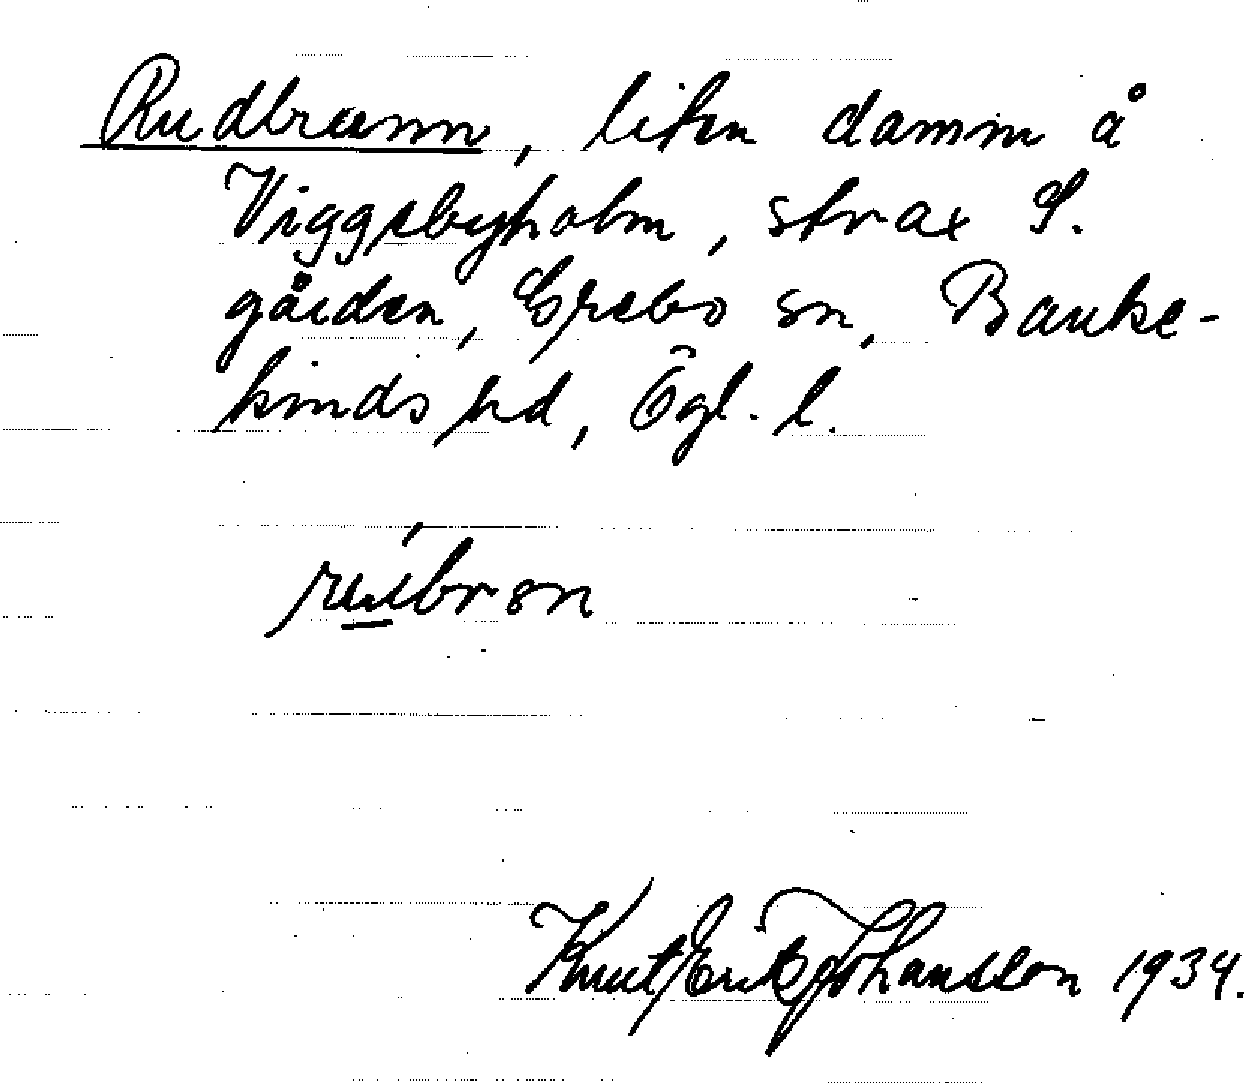 Rudbrunn, liten damm å
Viggebyholm, strax S.
gården, Grebo sn, Banke-
kinds hd, Ögl. l.
Knut Erik Johansson 1934.